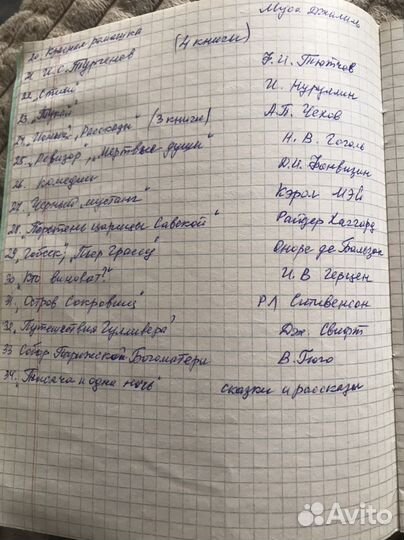 20. Красная ромашка Муса Джалиль
21. И.С. Тургенев (4 книги)
22. „Стихи" Ф.И. Тютчев
23. „Тукай" И. Нуруллин
24. „Рассказы" (3 книги) А.П. Чехов
25. „Ревизор", „Мертвые души" Н.В. Гоголь
26. Комедии Д.И. Фонвизин
27. „Черный мустанг" Кэрол Мэй
28. „Перстень царицы Савской" Райдер Хаггард
29. „Гобсек", „Пьер Грассу" Оноре де Бальзак
30. „Кто виноват?" И В Герцен
31. „Остров Сокровищ" Р Л Стивенсон
32. „Путешествия Гулливера" Дж. Свифт
33 Собор Парижской Богоматери В. Гюго
34. „Тысяча и одна ночь" сказки и рассказы
Avito